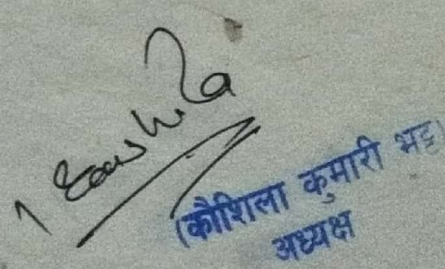 (कौशिला कुमारी भट्ट)
अध्यक्ष